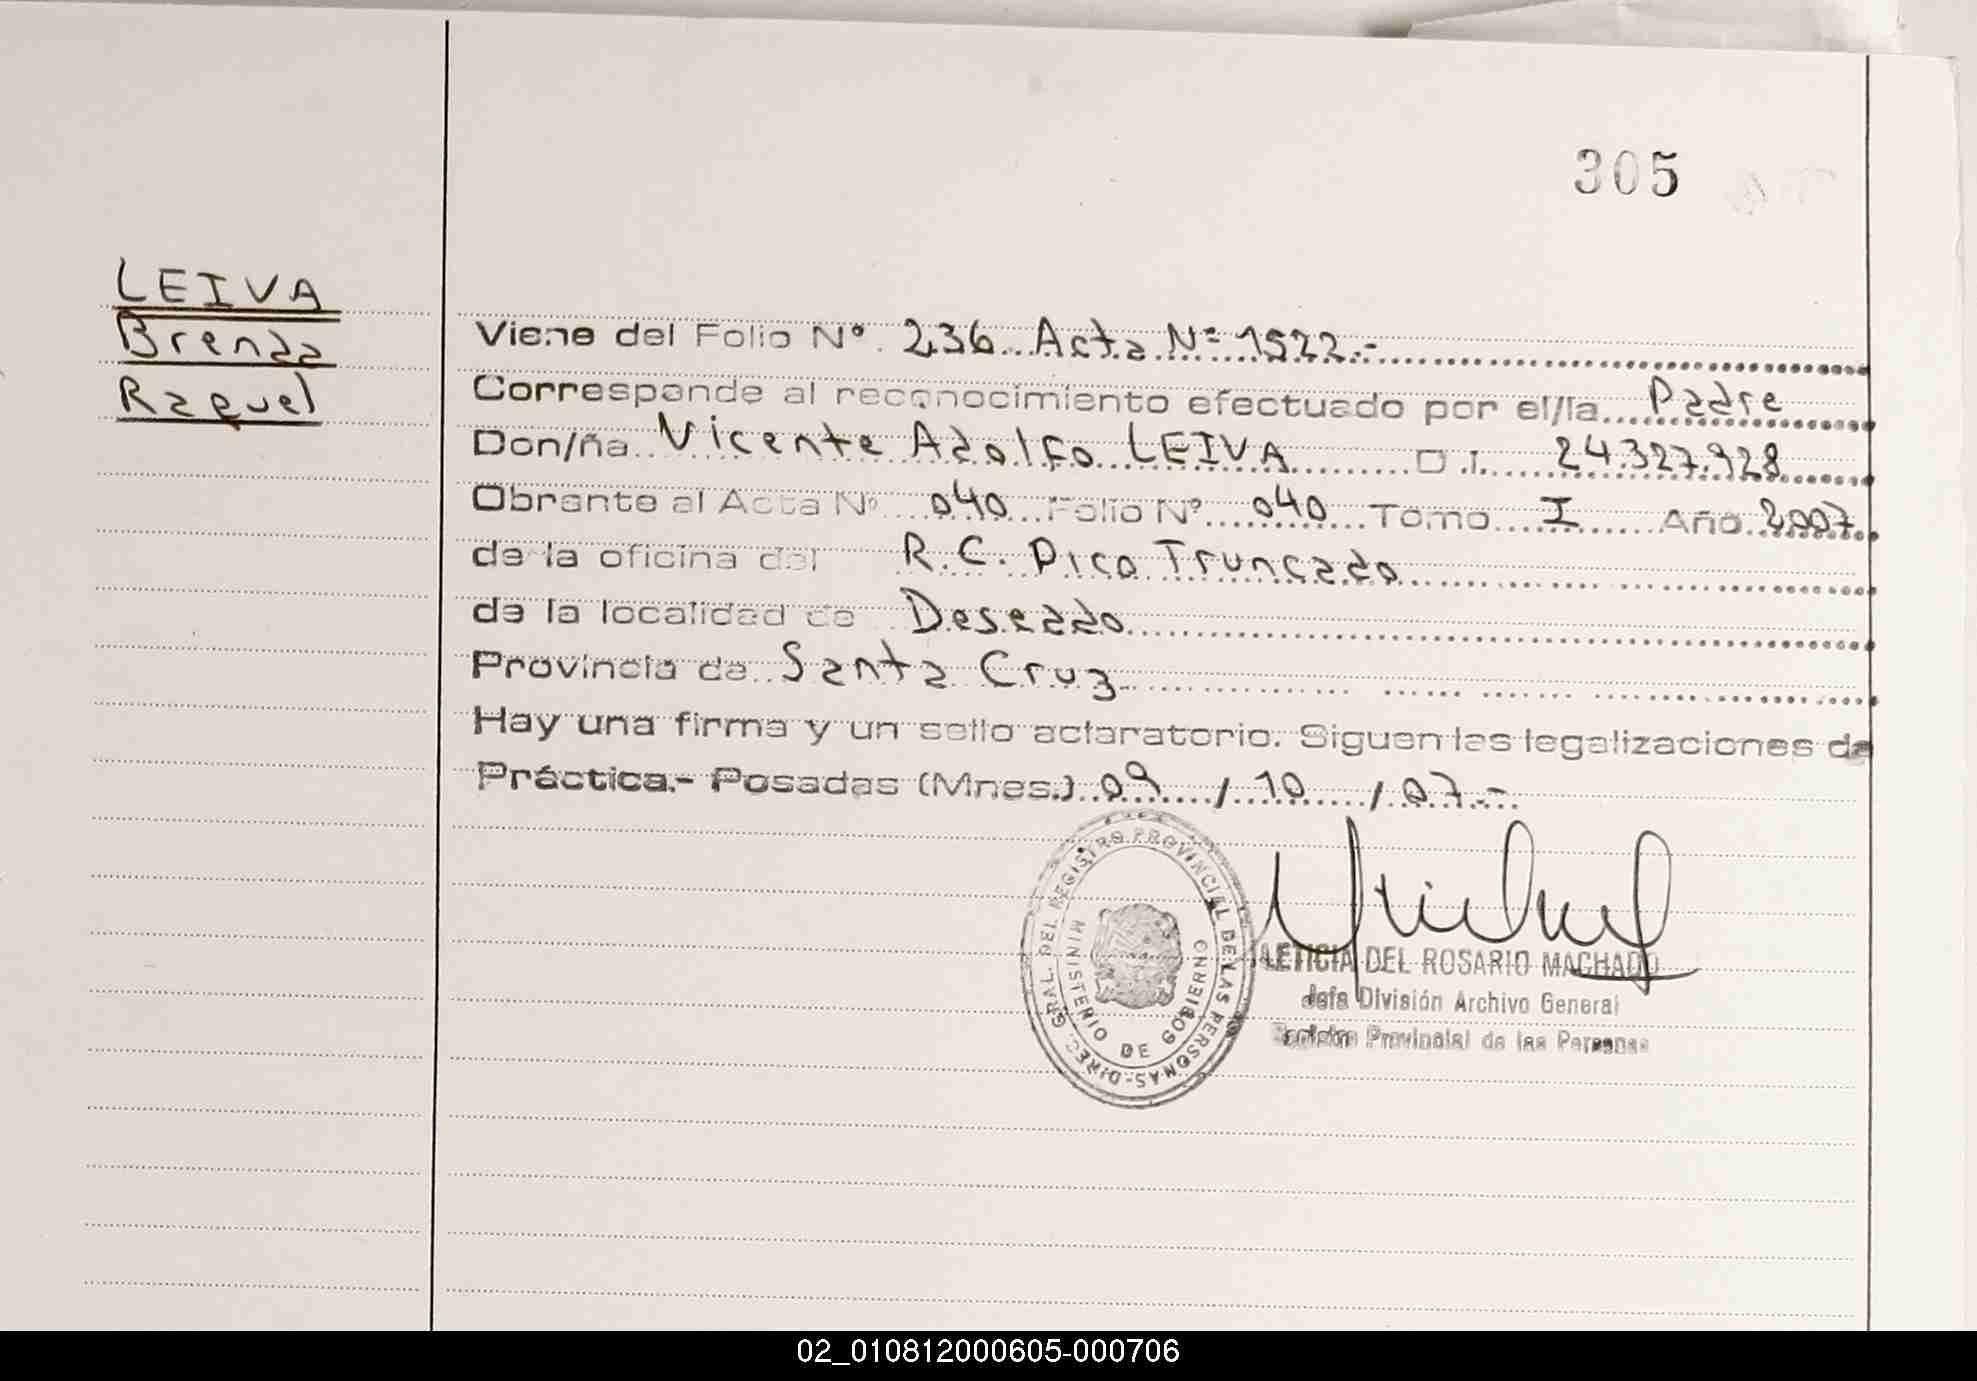 305
LEIVA
Brenda
Raquel
Viene del Folio Nº 236 Acta Nº 1522.-
Corresponde al reconocimiento efectuado por el/la Padre
Don/ña Vicente Adolfo LEIVA D.I. 24.327.928
Obrante al Acta Nº 040 Folio Nº 040 Tomo I Año 2007
de la oficina del R.C. Pico Truncado
de la localidad de Deseado
Provincia de Santa Cruz
Hay una firma y un sello aclaratorio. Siguen las legalizaciones de
Práctica.- Posadas (Mnes.) 09 / 10 / 07.-
DIREC. GRAL. DEL REGISTRO PROVINCIAL DE LAS PERSONAS-
MINISTERIO DE GOBIERNO
LETICIA DEL ROSARIO MACHADO
Jefa División Archivo General
Registro Provincial de las Personas
02_010812000605-000706